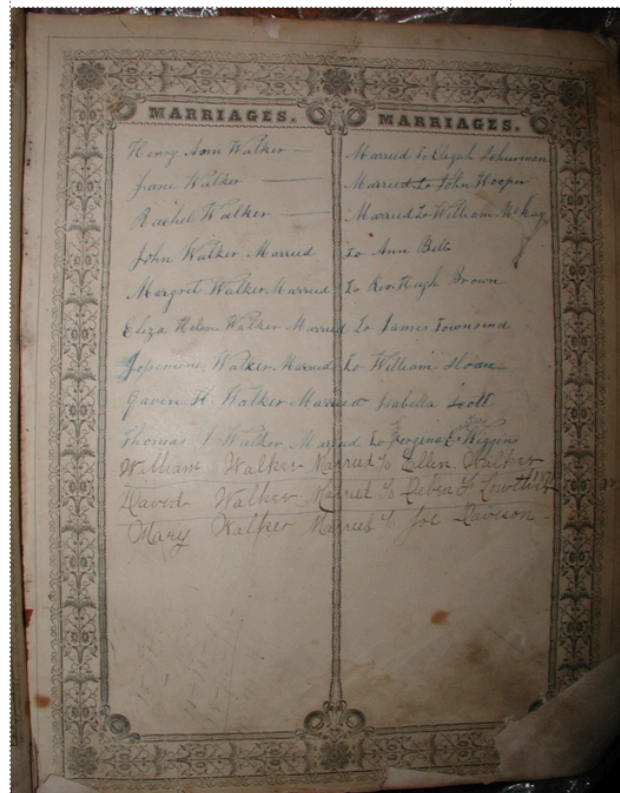 MARRIAGES. MARRIAGES.
Henry Ann Walker — Married To Elijah Schurman
Jane Walker — Married To John Hooper
Rachel Walker — Married To William McKay
John Walker Married To Ann Bell
Margret Walker Married To Rev Hugh Brown
Eliza Helen Walker Married To James Townsend
Walker Married To William Sloan
Gaven H Walker Married Isabella Scott
Thomas J Walker Married To E Wiggins
William Walker Married To Ellen Walker
David Walker Married To
Mary Walker Married To Joe Davison